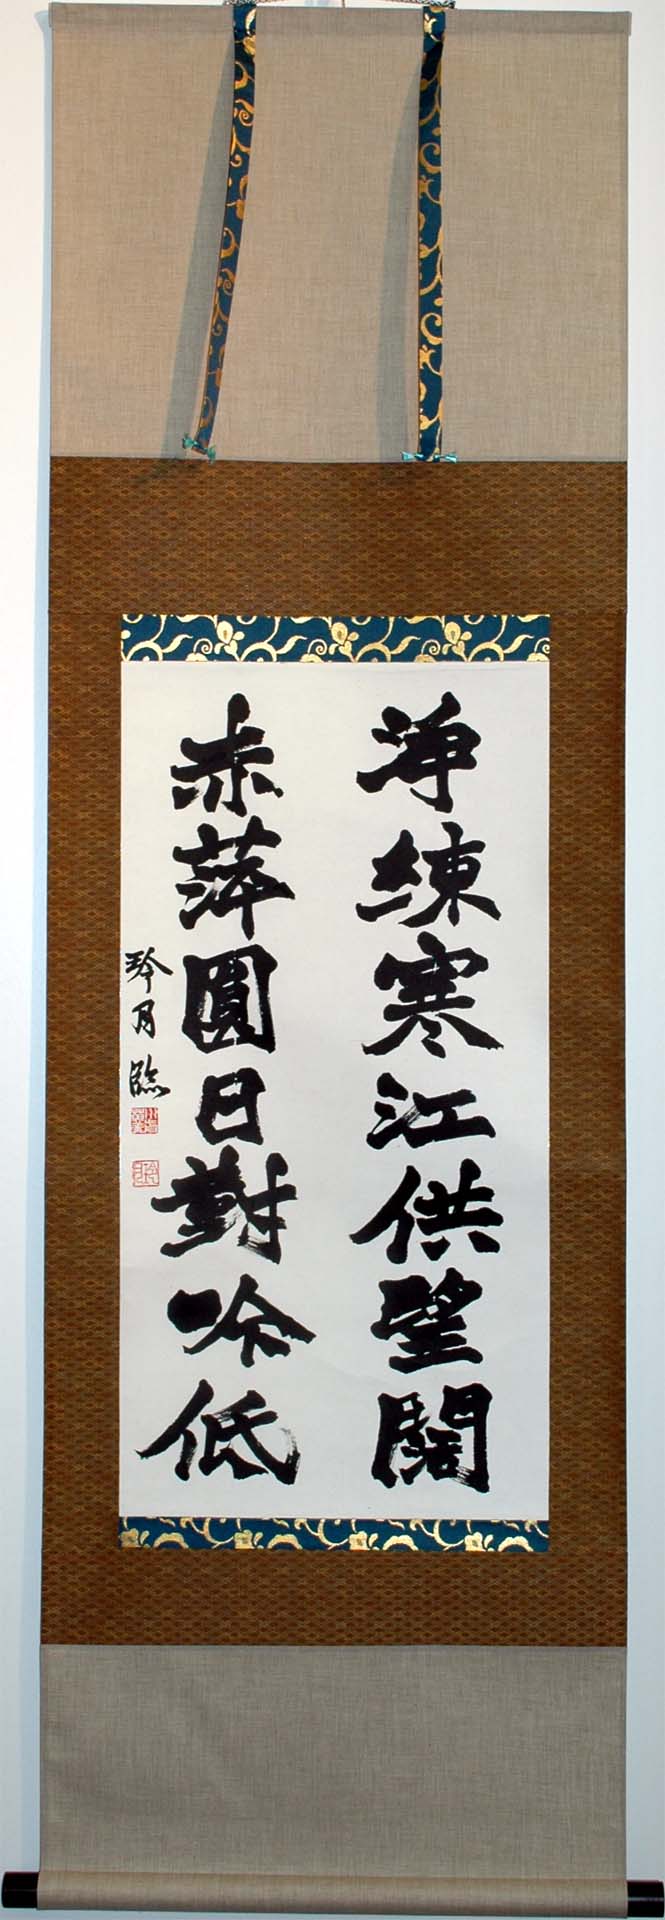 淨練寒江供望闊
赤萍圓日對吟低
琴月臨